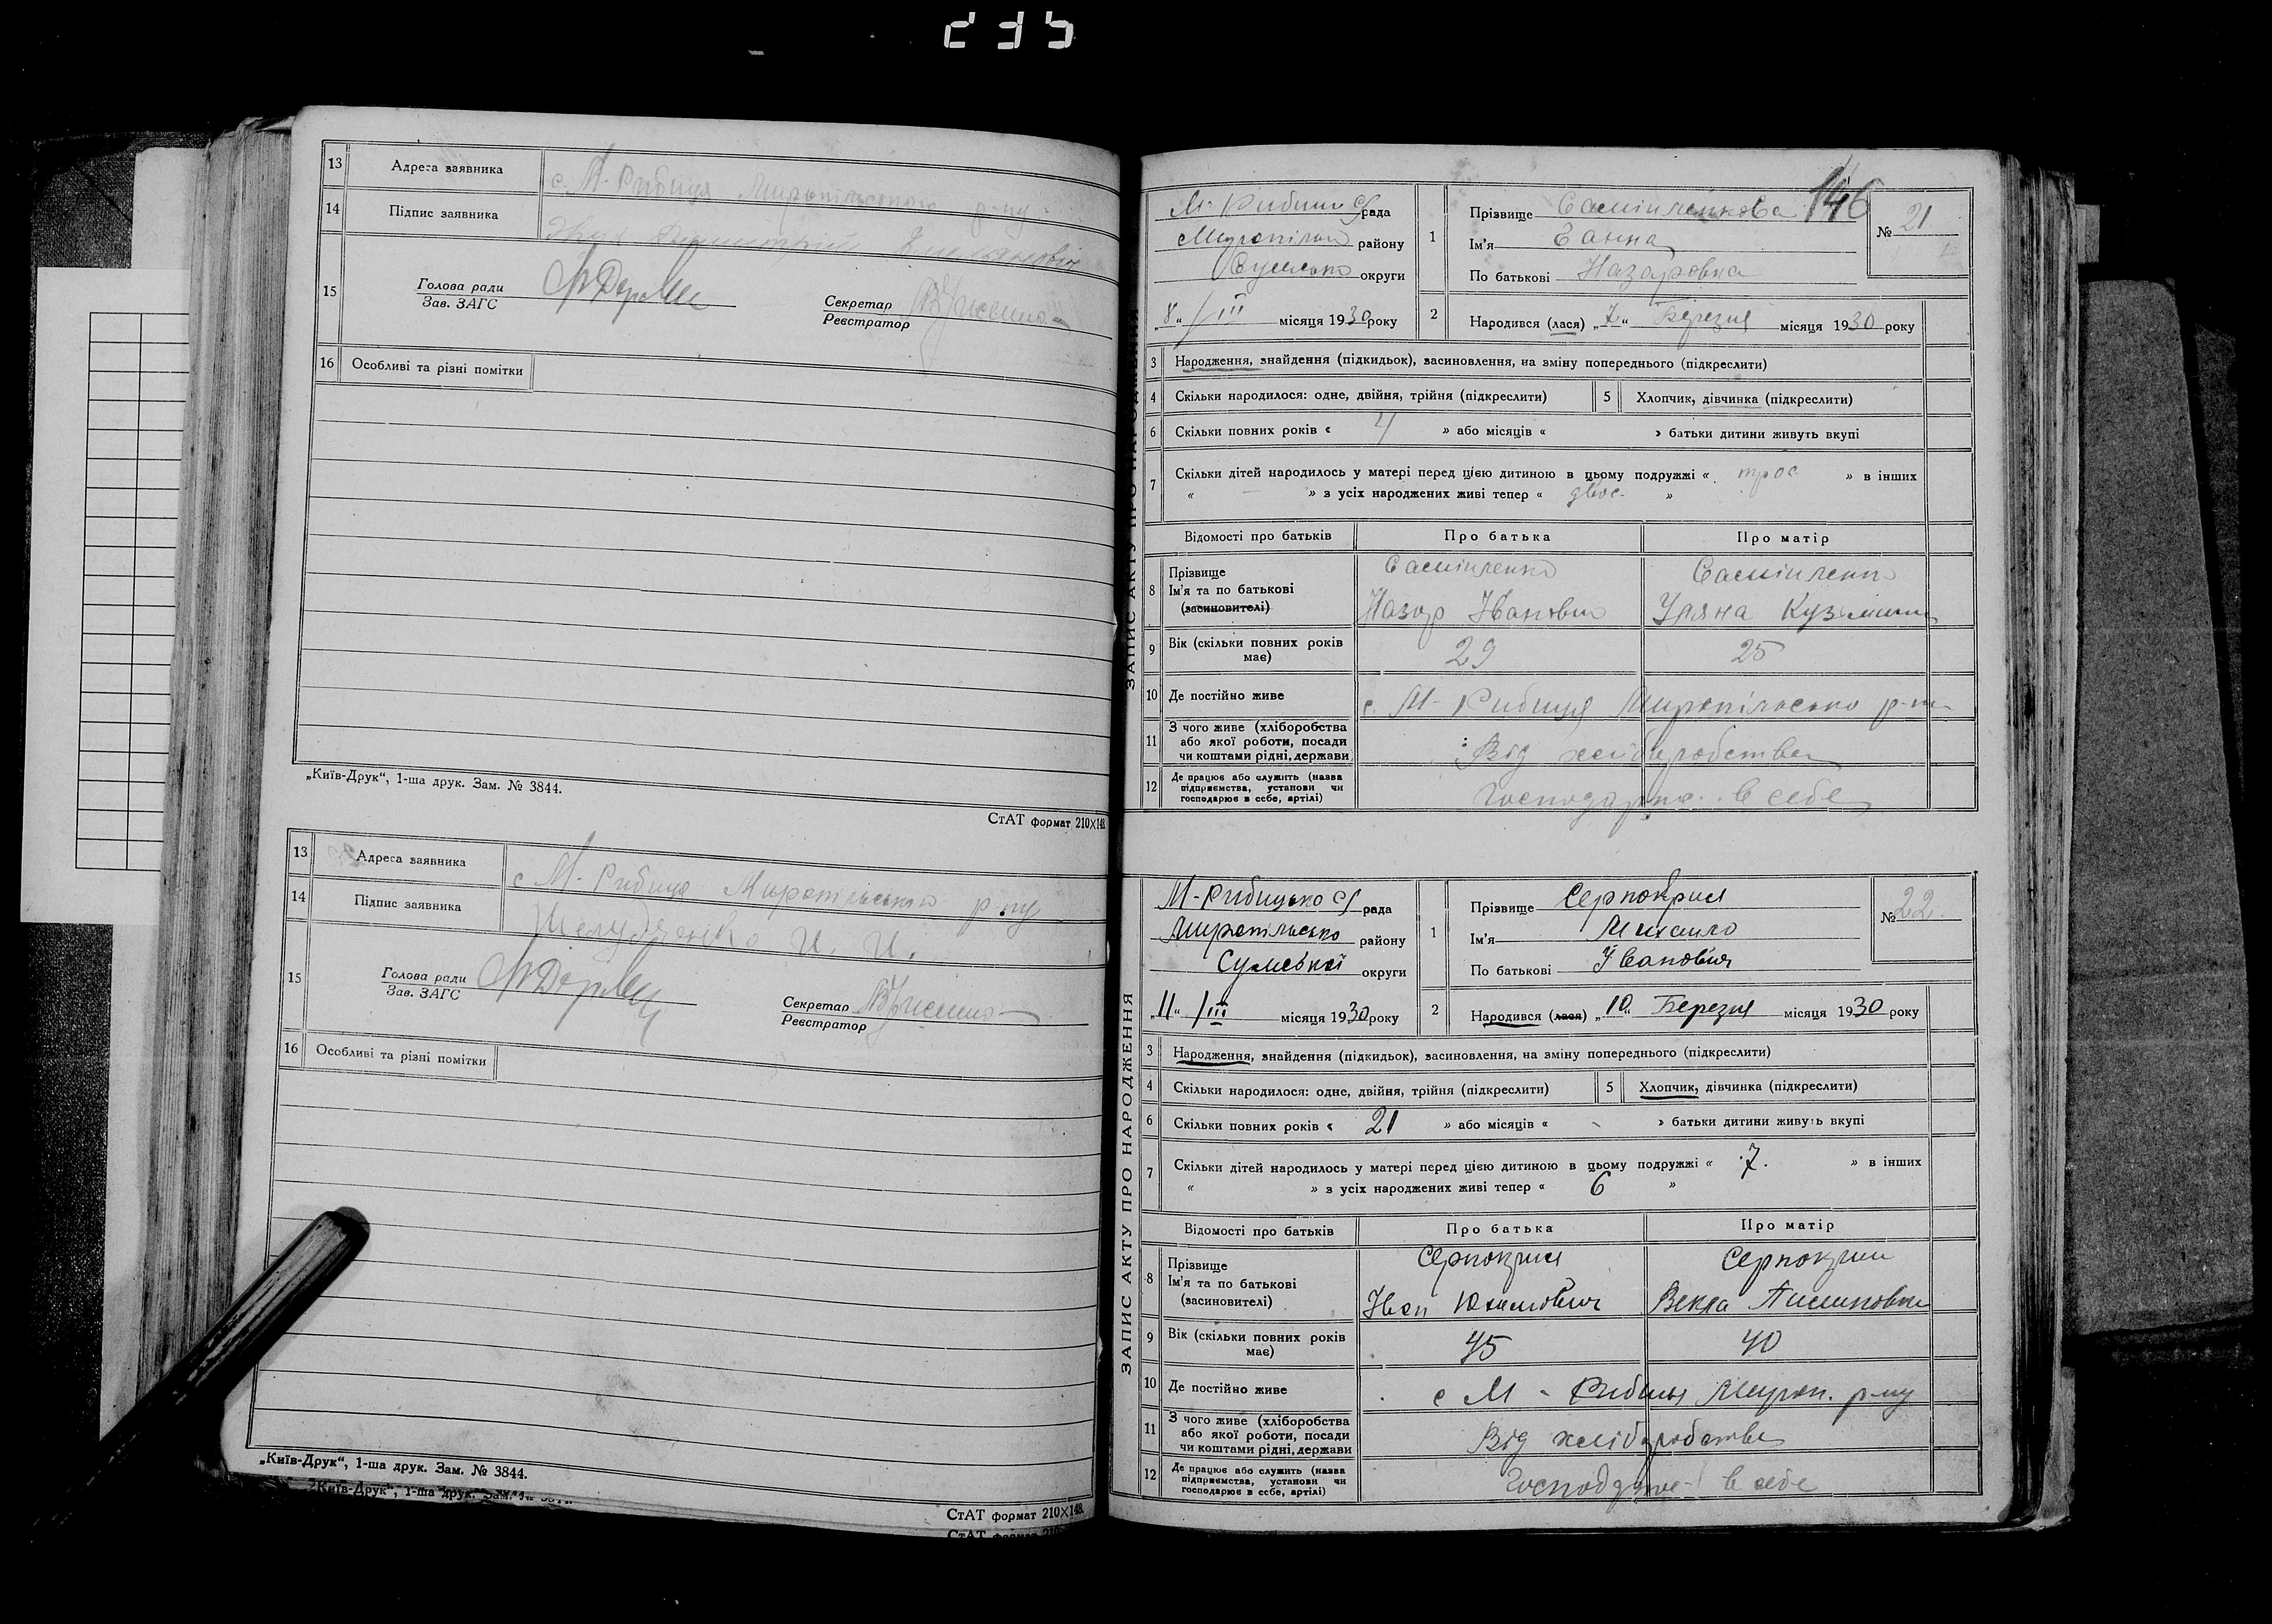 235
13 Адреса заявника с. М-Рибиця Миропільського р-ну
14 Підпис заявника
15 Голова ради
Зав. ЗАГС
Секретар
Реєстратор
16 Особливі та різні помітки
„Київ-Друк“, 1-ша друк. Зам. № 3844.
СтАТ формат 210×148.
13 Адреса заявника с М-Рибиця Миропільського р-ну
14 Підпис заявника И. И.
15 Голова ради
Зав. ЗАГС
Секретар
Реєстратор
16 Особливі та різні помітки
„Київ-Друк“, 1-ша друк. Зам. № 3844.
СтАТ формат 210×148.
146
ЗАПИС АКТУ ПРО НАРОДЖЕННЯ
рада
району
округи
„8“ / III місяця 1930 року
1 Прізвище
Ім'я Ганна
По батькові Назаровна
№ 21
2 Народився (лася) „7“ Березня місяця 1930 року
3 Народження, знайдення (підкидьок), засиновлення, на зміну попереднього (підкреслити)
4 Скільки народилося: одне, двійня, трійня (підкреслити)
5 Хлопчик, дівчинка (підкреслити)
6 Скільки повних років « 4 » або місяців « » батьки дитини живуть вкупі
7 Скільки дітей народилось у матері перед цією дитиною в цьому подружжі « троє » в інших
« — » з усіх народжених живі тепер « двоє »
Відомості про батьків Про батька Про матір
8 Прізвище
Ім'я та по батькові
(засиновителі)
Назар Іванович
Уляна
9 Вік (скільки повних років має) 29 25
10 Де постійно живе с. М-Рибиця Миропільсько р-н
11 З чого живе (хліборобства
або якої роботи, посади
чи коштами рідні, держави
Від хліборобства
12 Де працює або служить (назва
підприємства, установи чи
господарює в себе, артілі)
в себе
ЗАПИС АКТУ ПРО НАРОДЖЕННЯ
М-Рибицько С/рада
Миропільсько району
Сумської округи
„11“ / III місяця 1930 року
1 Прізвище Серпокрил
Ім'я Михайло
По батькові Іванович
№ 22
2 Народився (лася) „10“ Березня місяця 1930 року
3 Народження, знайдення (підкидьок), засиновлення, на зміну попереднього (підкреслити)
4 Скільки народилося: одне, двійня, трійня (підкреслити)
5 Хлопчик, дівчинка (підкреслити)
6 Скільки повних років « 21 » або місяців « - » батьки дитини живуть вкупі
7 Скільки дітей народилось у матері перед цією дитиною в цьому подружжі « 7. » в інших
« » з усіх народжених живі тепер « 6 »
Відомості про батьків Про батька Про матір
8 Прізвище
Ім'я та по батькові
(засиновителі)
Серпокрил
Іван Юхимович
Серпокрил
Векла
9 Вік (скільки повних років має) 45 40
10 Де постійно живе с М-Рибиця Мироп. р-ну
11 З чого живе (хліборобства
або якої роботи, посади
чи коштами рідні, держави
Від хліборобства
12 Де працює або служить (назва
підприємства, установи чи
господарює в себе, артілі)
в себе